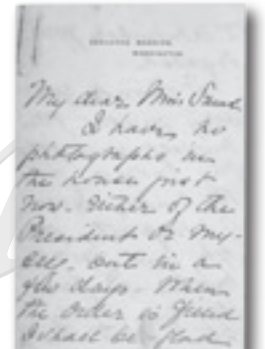 EXECUTIVE MANSION,
WASHINGTON.
My dear Miss
I have no
photographs in
the house just
now. either of the
President or my-
self. but in a
few days. When
the order is filled
I shall be glad